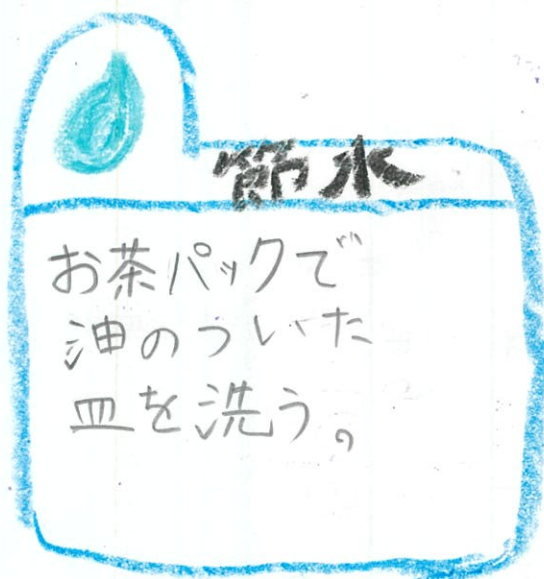 節水
お茶パックで
油のついた
皿を洗う。